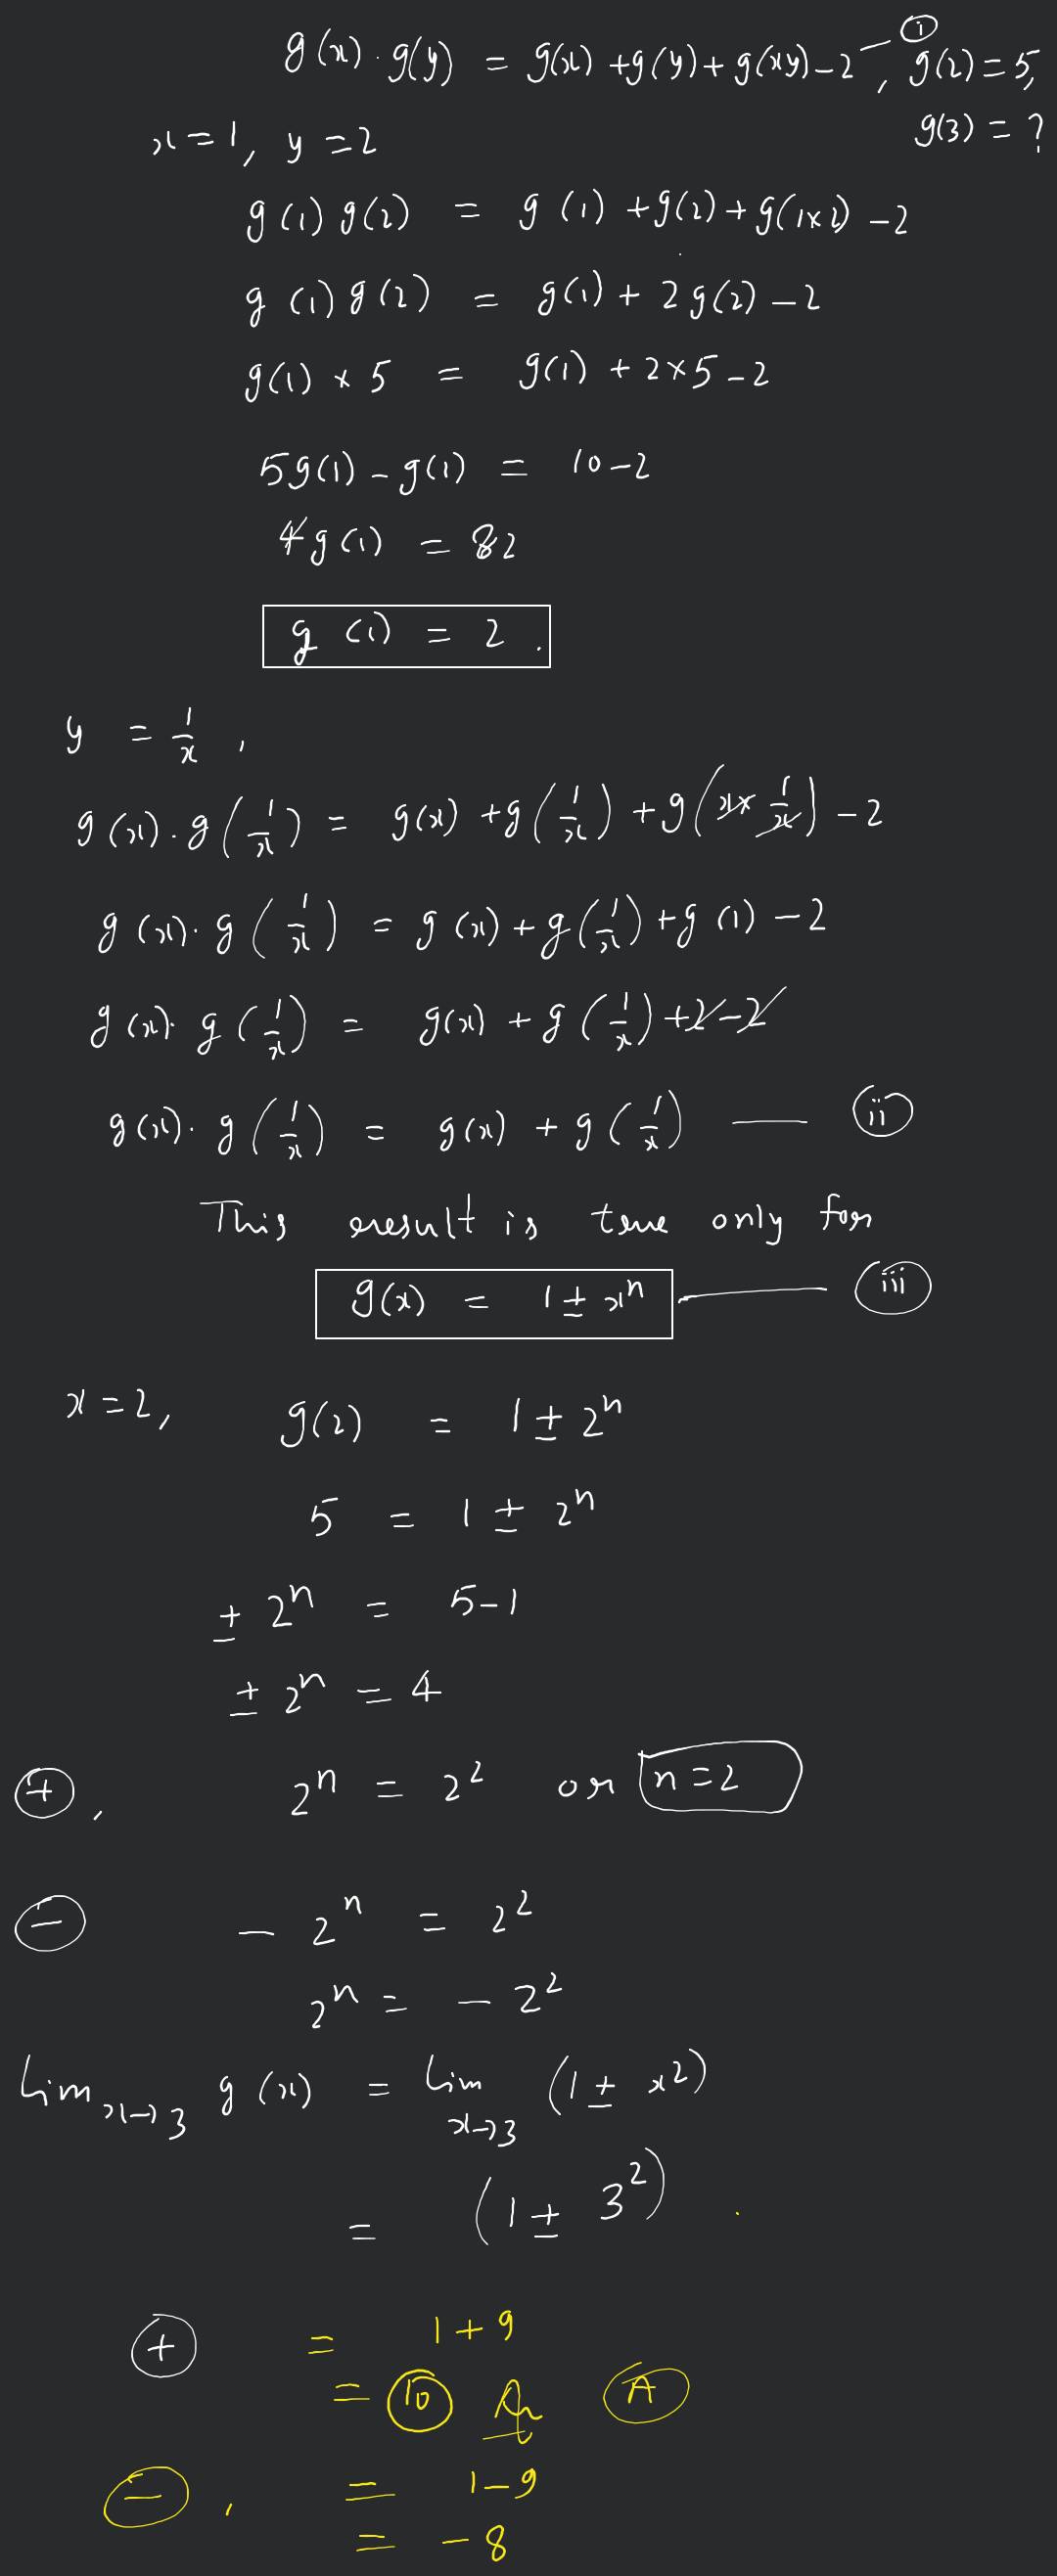 g(x) · g(y) = g(x) + g(y) + g(xy) – 2 — (i), g(2) = 5,
g(3) = ?
x = 1, y = 2
g(1) g(2) = g(1) + g(2) + g(1×2) – 2
g(1) g(2) = g(1) + 2g(2) – 2
g(1) × 5 = g(1) + 2×5 – 2
5g(1) – g(1) = 10 – 2
4g(1) = 8 2
g(1) = 2.
y = 1/x ,
g(x) · g(1/x) = g(x) + g(1/x) + g(x × 1/x) – 2
g(x) · g(1/x) = g(x) + g(1/x) + g(1) – 2
g(x) · g(1/x) = g(x) + g(1/x) + 2 – 2
g(x) · g(1/x) = g(x) + g(1/x) — (ii)
This result is true only for
g(x) = 1 ± xⁿ — (iii)
x = 2, g(2) = 1 ± 2ⁿ
5 = 1 ± 2ⁿ
± 2ⁿ = 5 – 1
± 2ⁿ = 4
(+), 2ⁿ = 2² or n = 2
(–) – 2ⁿ = 2²
2ⁿ = – 2²
Lim x→3 g(x) = Lim x→3 (1 ± x²)
= (1 ± 3²)
(+) = 1 + 9
= 10 A
(–), = 1 – 9
= – 8